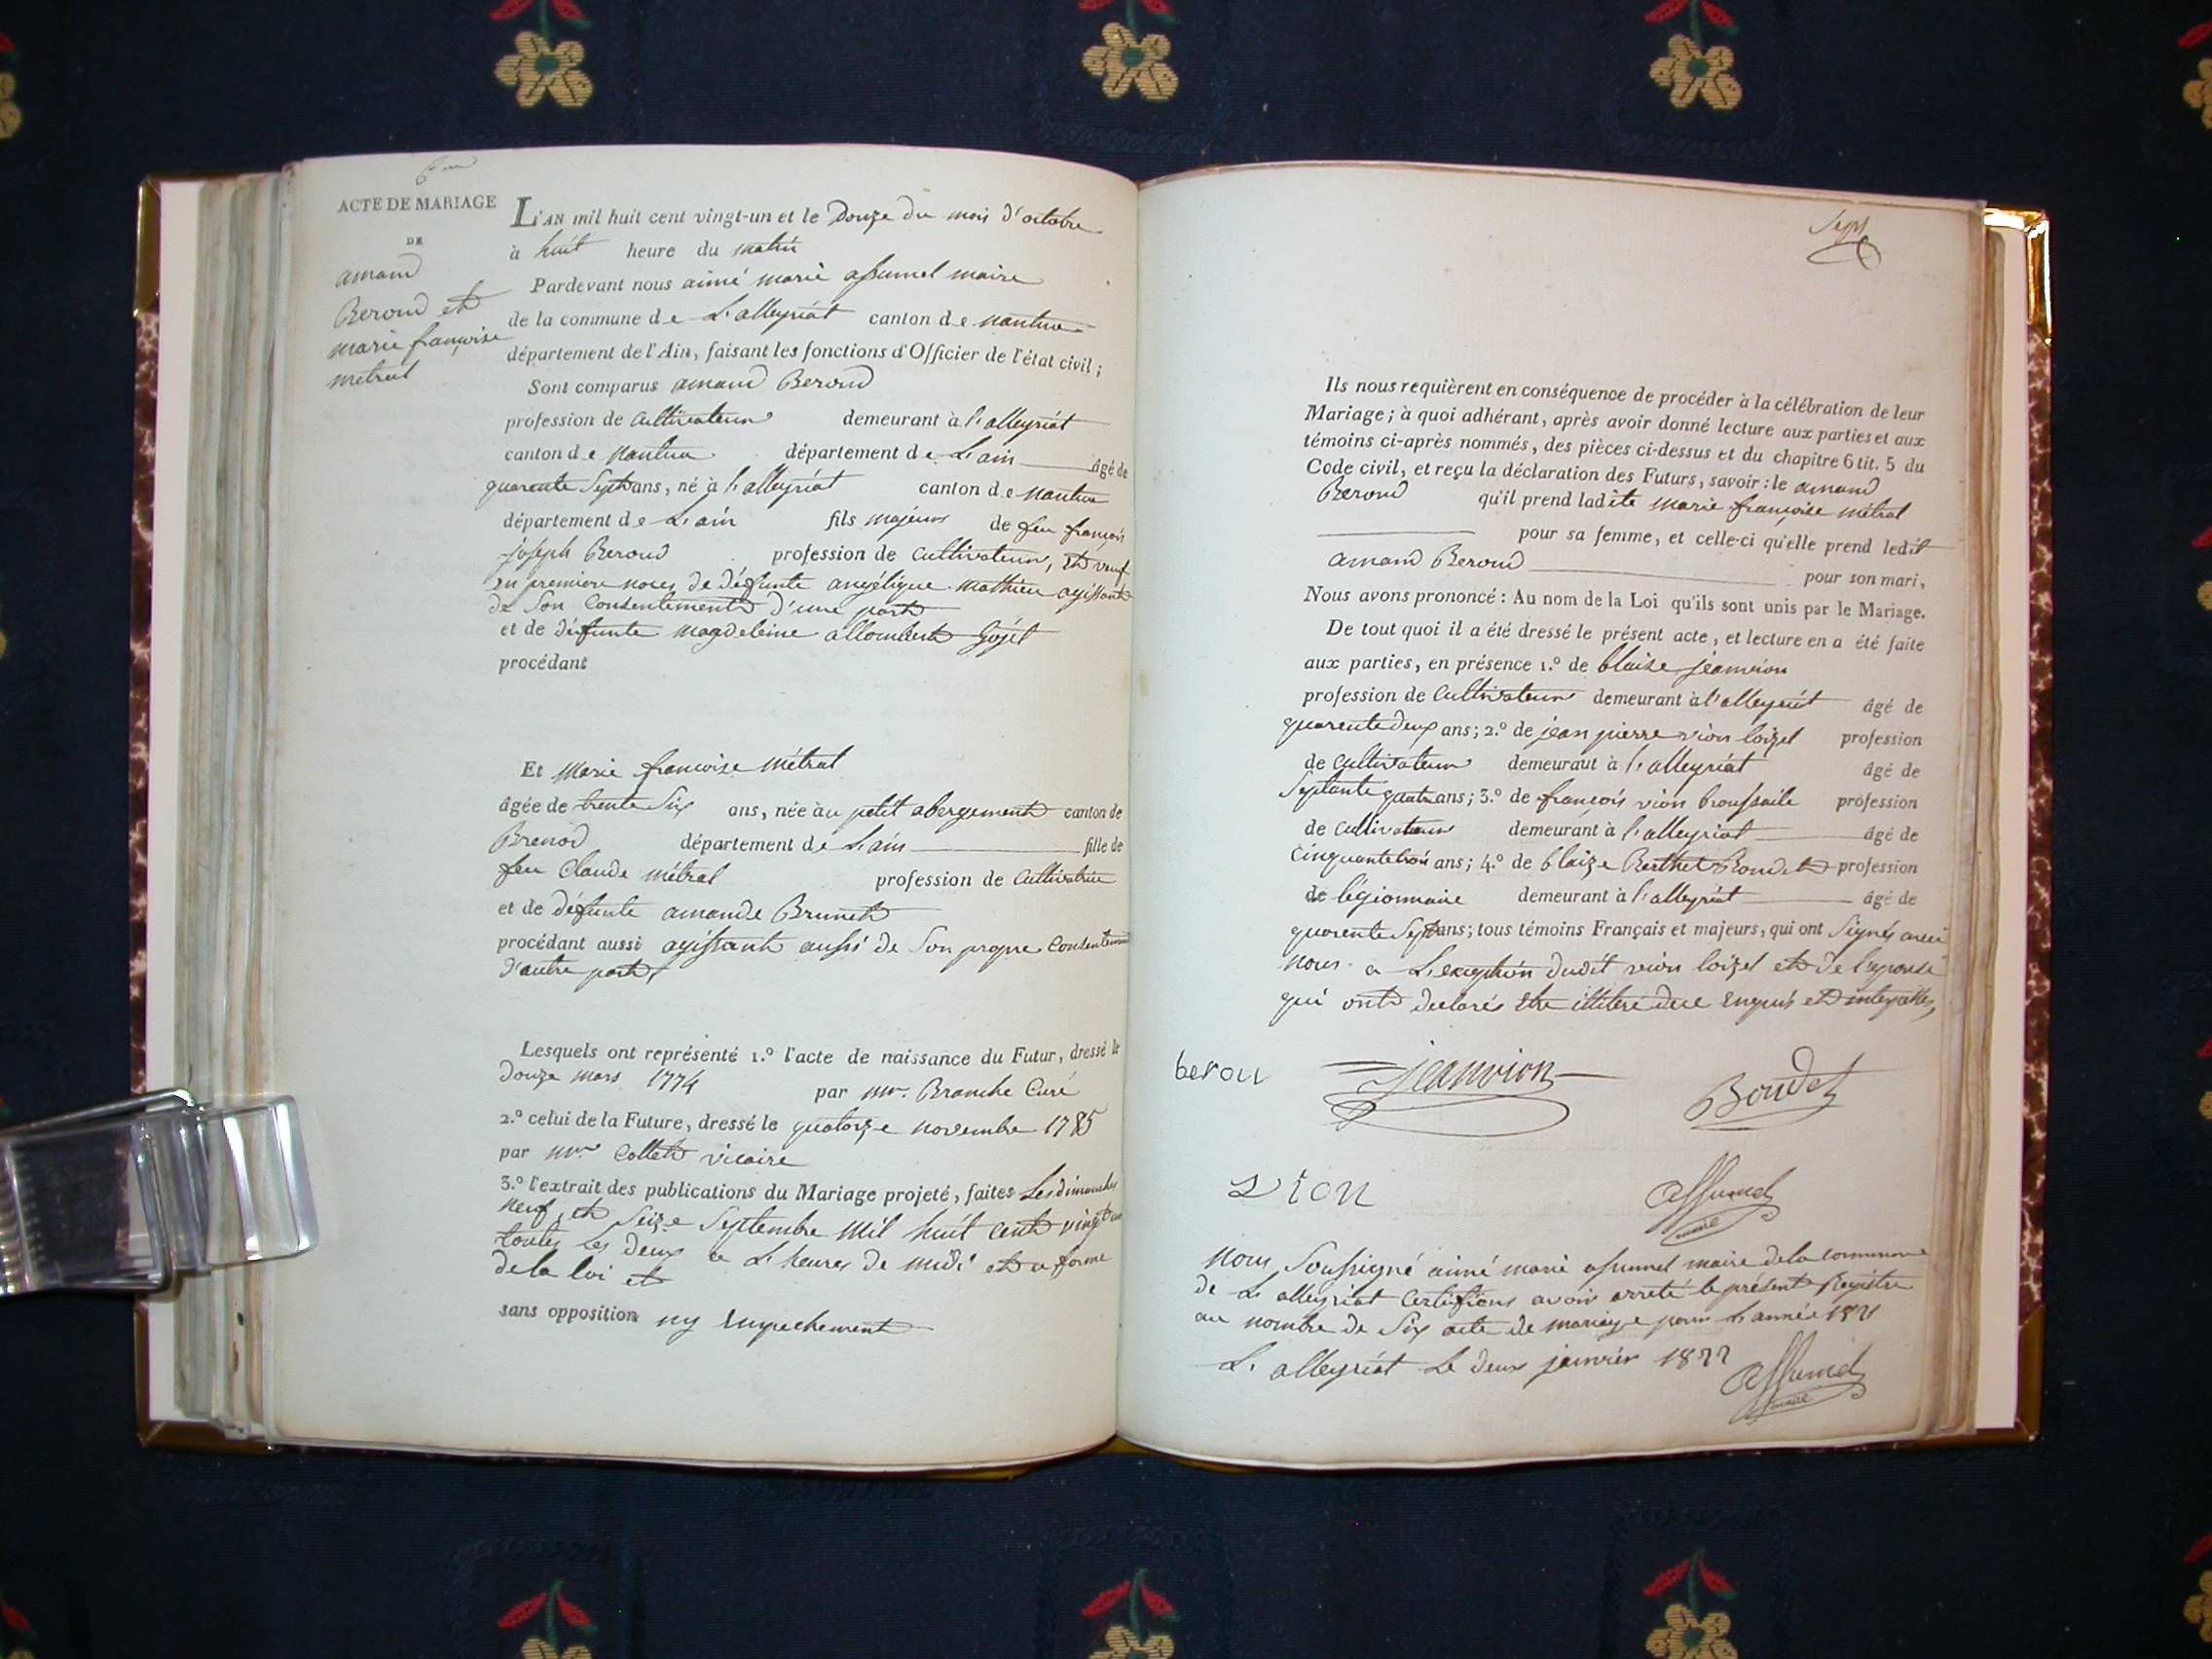 6me
ACTE DE MARIAGE
DE
amand
Beroud et
marie françoise
métral
L'AN mil huit cent vingt-un et le Douze du mois d'octobre
à huit heure du matin
Pardevant nous aimé marie assumel maire
de la commune de L'alleyriat canton de nantua
département de l'Ain, faisant les fonctions d'Officier de l'état civil;
Sont comparus amand Beroud
profession de Cultivateur demeurant à l'alleyriat
canton de nantua département de L'ain âgé de
quarente Sept ans, né à l'alleyriat canton de nantua
département de L'ain fils majeur de feu françois
joseph Beroud profession de cultivateur, et veuf
en premiere noces de défunte angélique mathieu agissant
de Son Consentement d'une part
et de défunte magdeleine allombert Gojet
procédant
Et Marie francoise Métral
âgée de trente Six ans, née àu petit abergement canton de
Brenod département de L'ain fille de
feu Claude métral profession de Cultivatrice
et de défunte amande Brunet
procédant aussi agissant aussi de Son propre Consentement
d'autre part
Lesquels ont représenté 1.º l'acte de naissance du Futur, dressé le
Douze mars 1774 par mr. Branche Curé
2.º celui de la Future, dressé le quatorze novembre 1785
par mr Collet vicaire
3.º l'extrait des publications du Mariage projeté, faites Les dimanches
neuf, et Seize Septembre mil huit cent vingt un
toutes les deux a L'heures de midi et a forme
de la loi et
sans opposition ny Empechement
Sept
Ils nous requièrent en conséquence de procéder à la célébration de leur
Mariage; à quoi adhérant, après avoir donné lecture aux parties et aux
témoins ci-après nommés, des pièces ci-dessus et du chapitre 6 tit. 5 du
Code civil, et reçu la déclaration des Futurs, savoir: le amand
Beroud qu'il prend ladite marie françoise métral
pour sa femme, et celle-ci qu'elle prend ledit
amand Beroud pour son mari,
Nous avons prononcé: Au nom de la Loi qu'ils sont unis par le Mariage.
De tout quoi il a été dressé le présent acte, et lecture en a été faite
aux parties, en présence 1.º de blaise jeanvion
profession de Cultivateur demeurant à l'alleyriat âgé de
quarente deux ans; 2.º de jean pierre vion loizel profession
de cultivateur demeurant à l'alleyriat âgé de
Septante quatre ans; 3.º de françois vion broussaile profession
de cultivateur demeurant à l'alleyriat âgé de
cinquante trois ans; 4.º de blaize Berthet Bondet profession
de légionnaire demeurant à l'alleyriat âgé de
quarente Sept ans; tous témoins Français et majeurs, qui ont Signés avec
nous a L'exception dudit vion loizel et de l'epouse
qui ont declarés Etre illiteré dece Enquis et interpellés,
berou
jeanvion
Bondet
vion
assumel
maire
nous Soussigné aimé marie assumel maire de la commune
de L'alleyriat Certifions avoir arreté le présent Registre
au nombre de Six acte de mariage pour L'année 1821
L'alleyriat Le deux janvier 1822
assumel
maire